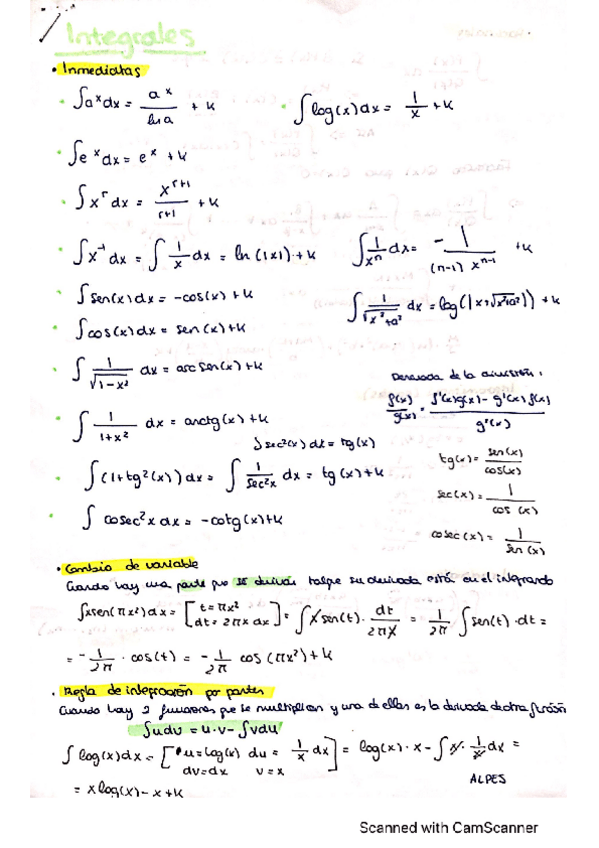 Integrales
• Inmediatas
• ∫aˣdx = aˣ/ln a + k
• ∫log(x)dx = 1/x + k
• ∫eˣdx = eˣ + k
• ∫xʳdx = xʳ⁺¹/r+1 + k
• ∫x⁻¹dx = ∫1/x dx = ln(|x|) + k
∫1/xⁿ dx = -1/(n-1)xⁿ⁻¹ + k
• ∫sen(x)dx = -cos(x) + k
∫1/√x²+a² dx = log(|x+√x²+a²|) + k
• ∫cos(x)dx = sen(x) + k
• ∫1/√1-x² dx = arcsen(x) + k
Derivada de la división:
f(x)/g(x) = f'(x)g(x) - g'(x)f(x)/g²(x)
• ∫1/1+x² dx = arctg(x) + k
∫sec²(x)dx = tg(x)
tg(x) = sen(x)/cos(x)
• ∫(1+tg²(x))dx = ∫1/sec²x dx = tg(x) + k
sec(x) = 1/cos(x)
• ∫cosec²x dx = -cotg(x) + k
cosec(x) = 1/sen(x)
• Cambio de variable
Cuando hay una parte que se deriva talque su derivada está en el integrando
∫xsen(πx²)dx = [t=πx² dt=2πx dx] = ∫x sen(t)·dt/2πx = 1/2π ∫sen(t)·dt =
= -1/2π · cos(t) = -1/2π cos(πx²) + k
• Regla de integración por partes
Cuando hay 2 funciones que se multiplican y una de ellas es la derivada de otra función
∫udv = u·v - ∫vdu
∫log(x)dx = [u=log(x) du=1/x dx dv=dx v=x] = log(x)·x - ∫x·1/x dx =
ALPES
= xlog(x) - x + k
Scanned with CamScanner